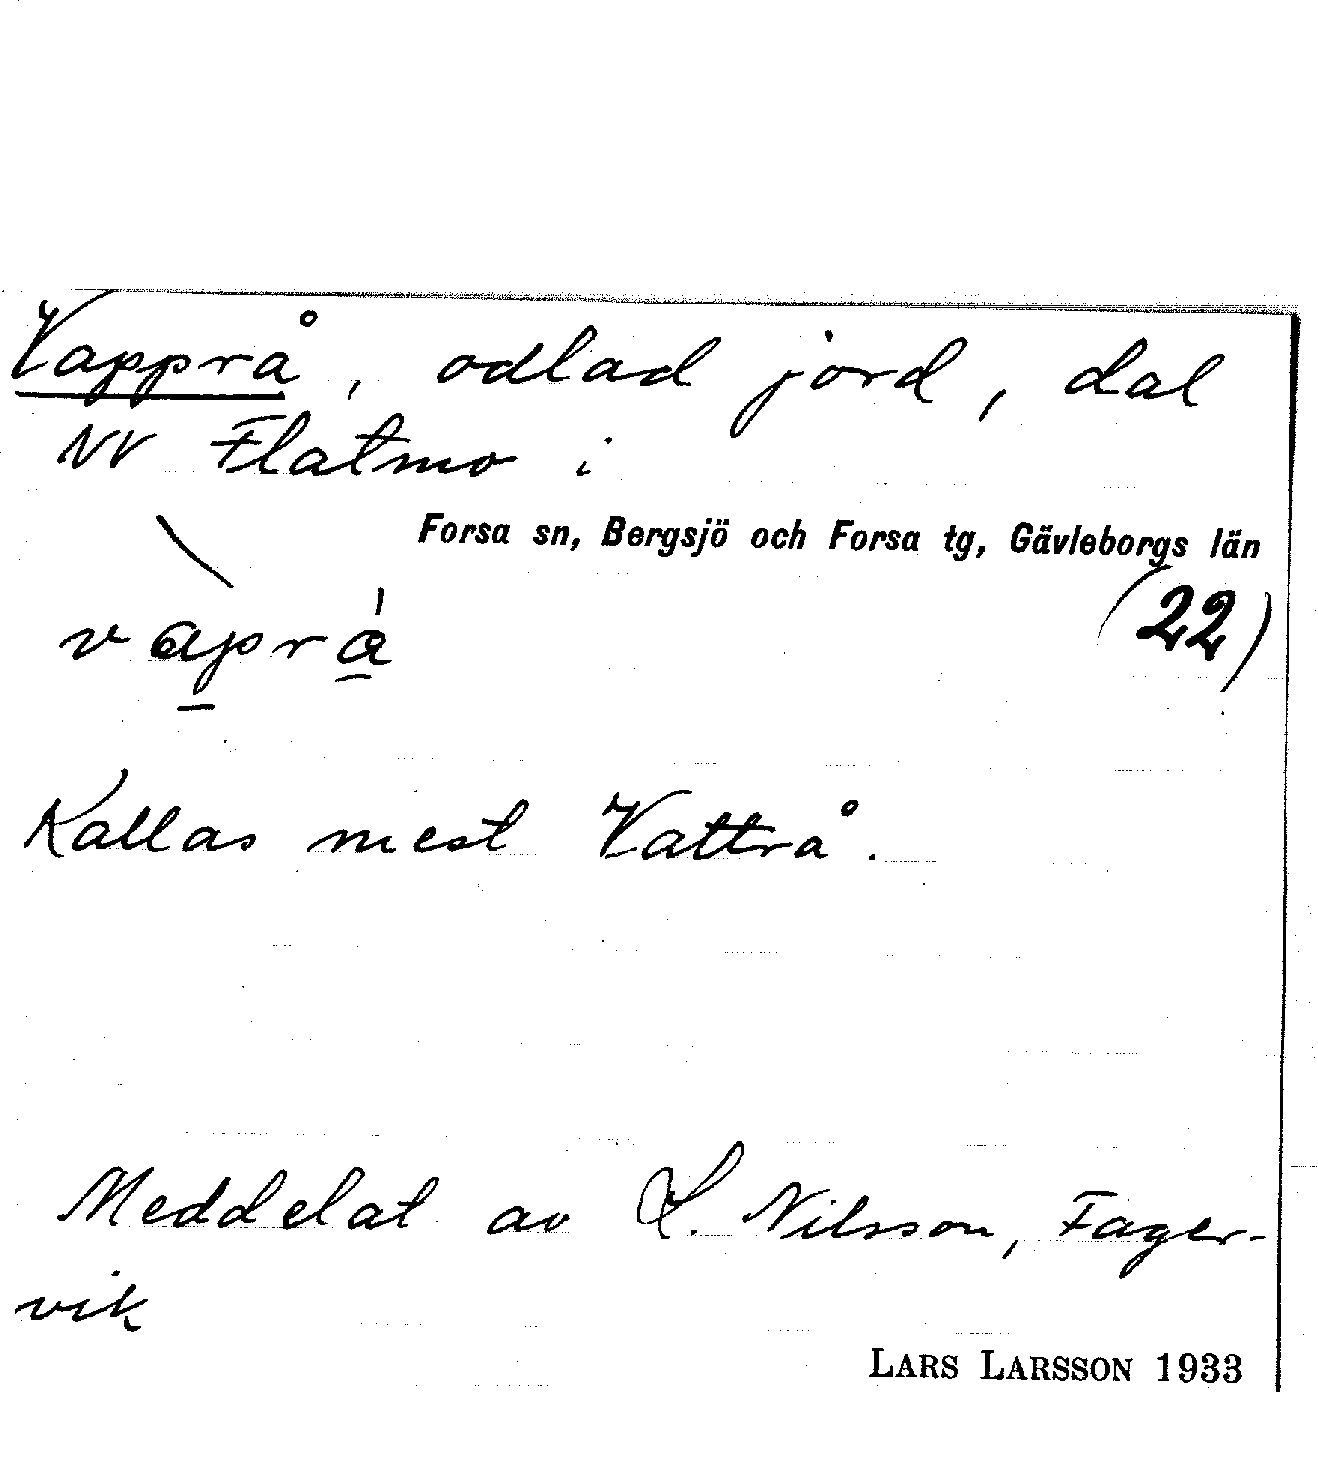 Vapprå, odlad jord, dal
NV Flatmo i
Forsa sn, Bergsjö och Forsa tg, Gävleborgs län
(22)
Kallas mest Vattrå.
Meddelat av L. Nilsson, Fager-
vik
LARS LARSSON 1933